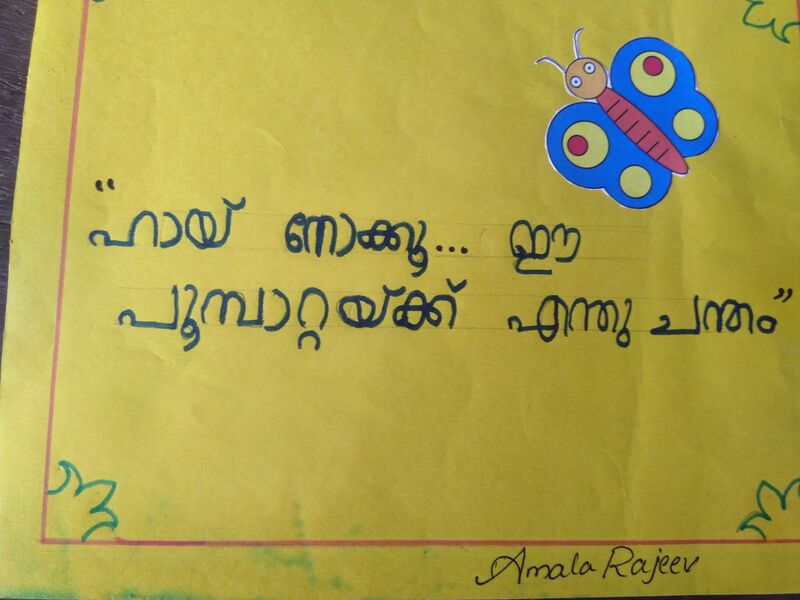 “ഹായ് നോക്കൂ... ഈ
പൂമ്പാറ്റയ്ക്ക് എന്തു ചന്തം”
Amala Rajeev